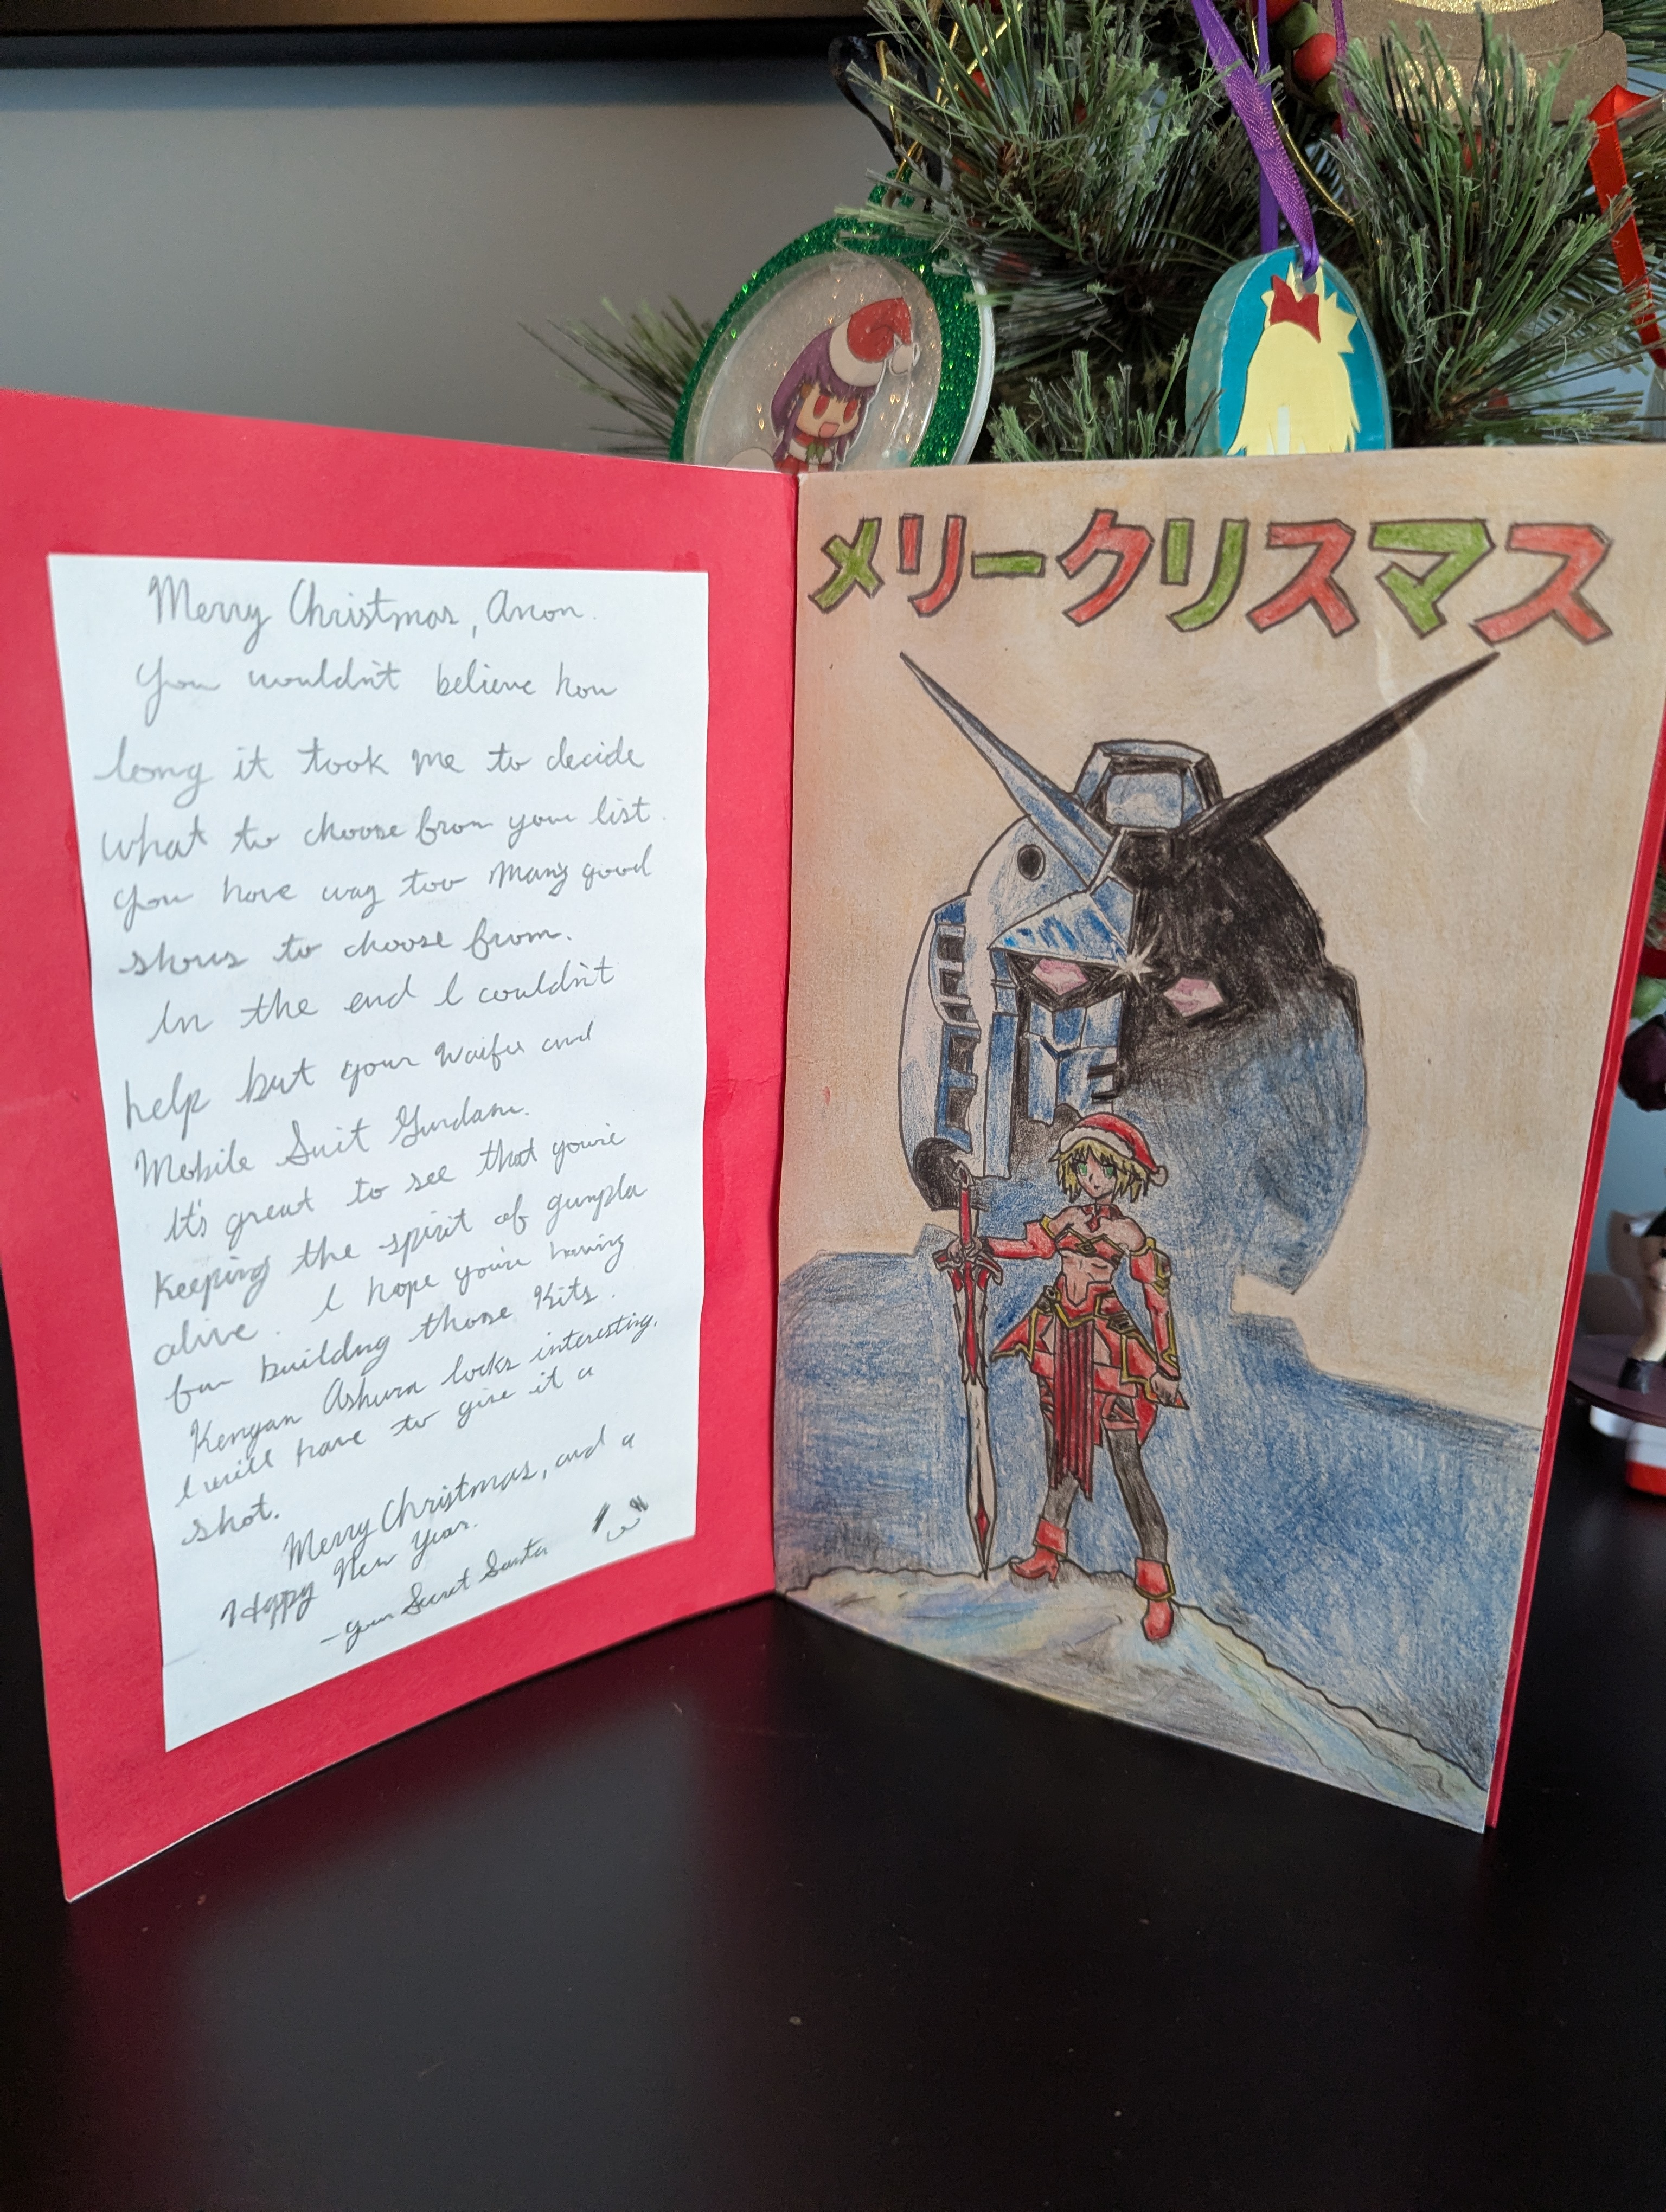 Merry Christmas, Anon.
You wouldn't believe how
long it took me to decide
what to choose from your list.
You have way too many good
shows to choose from.
In the end I couldn't
help but your waifu and
Mobile Suit Gundam.
It's great to see that you're
keeping the spirit of gunpla
alive. I hope you're having
fun building those kits.
Kengan Ashura looks interesting.
I will have to give it a
shot.
Merry Christmas, and a
Happy New Year.
- Your Secret Santa
メリークリスマス